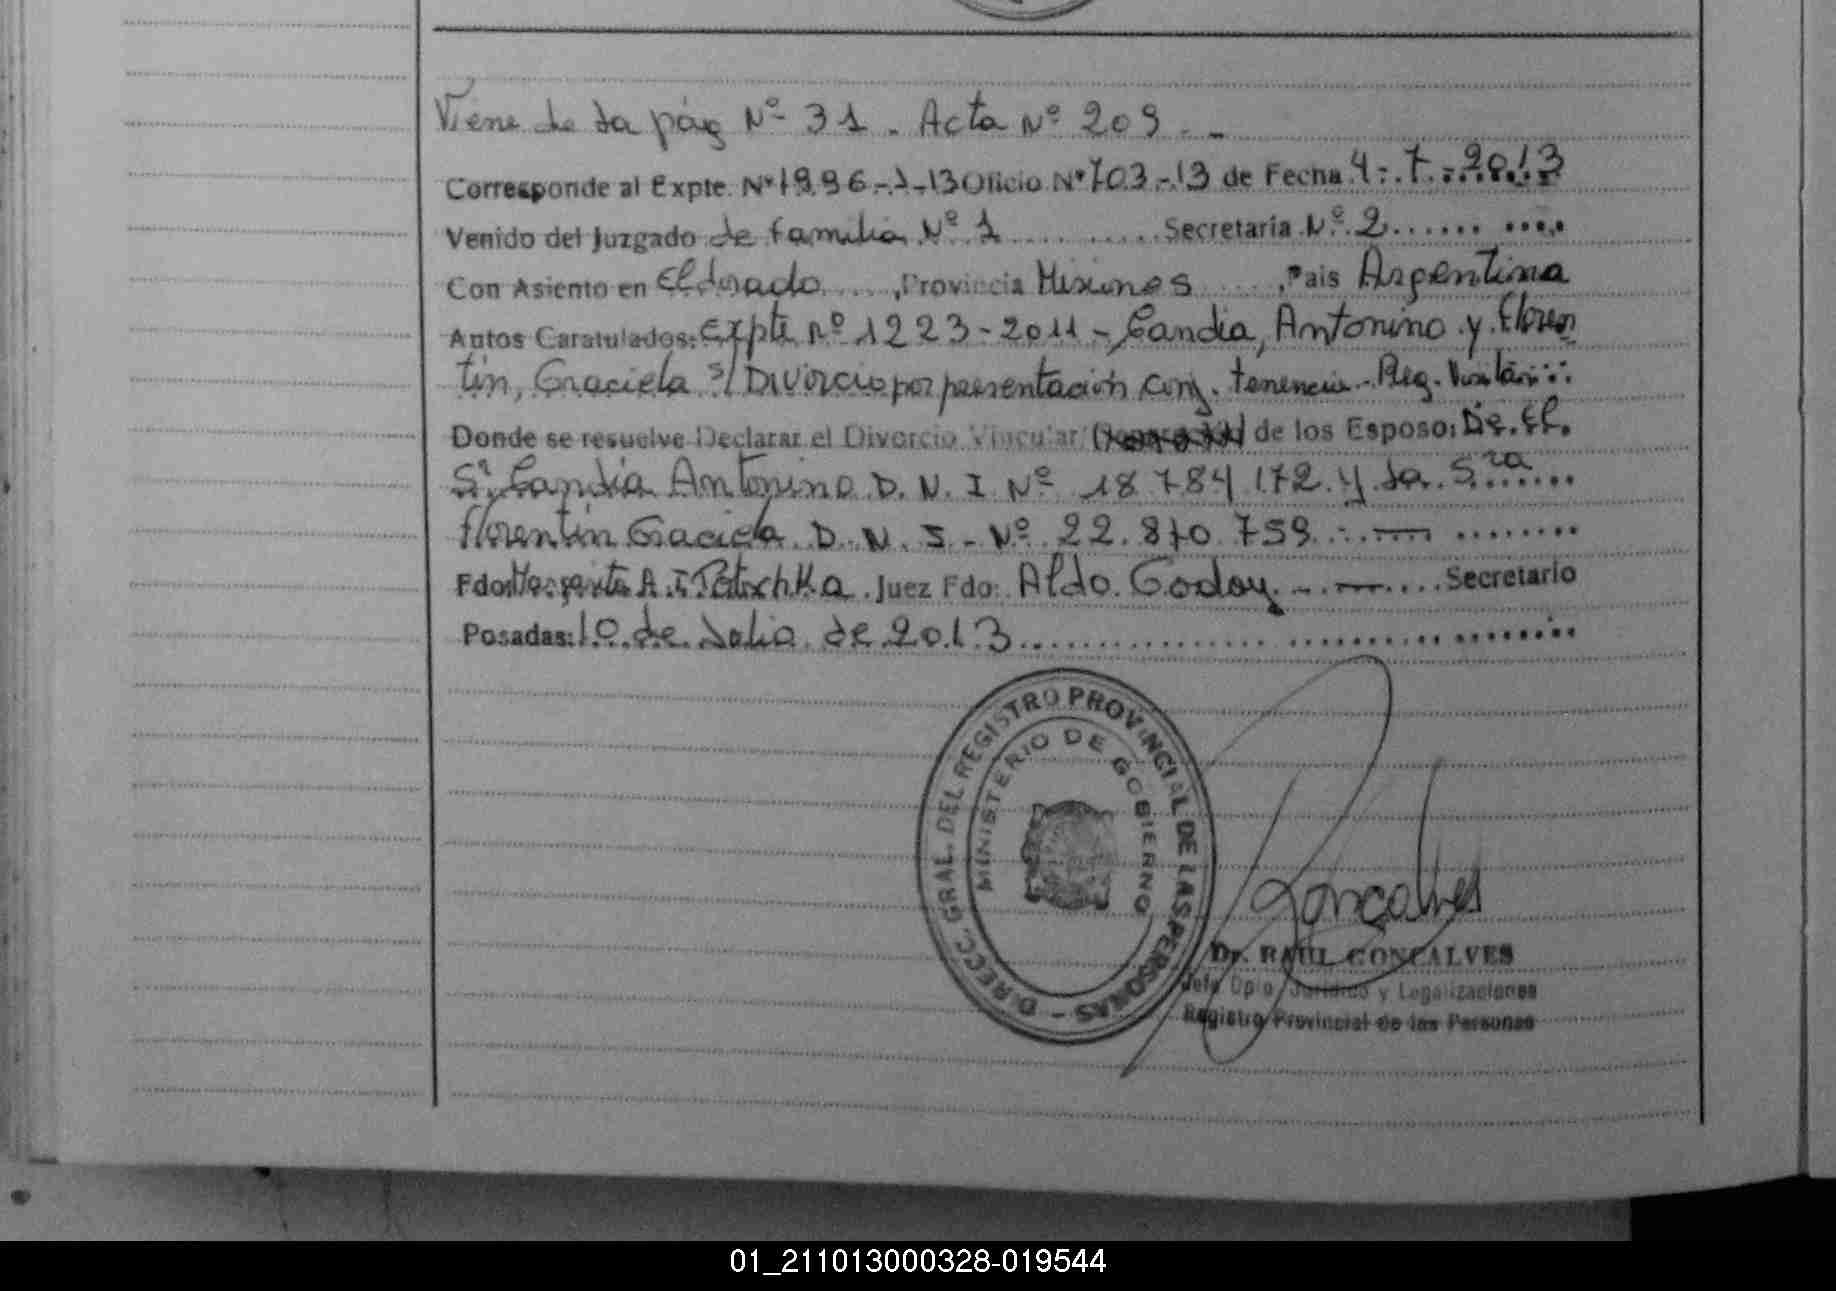 Viene de la pág Nº 31. Acta Nº 209. -
Corresponde al Expte. Nº 1996-J-13 Oficio Nº 703-13 de Fecha 4.7.2013
Venido del Juzgado de familia Nº 1 Secretaría Nº 2
Con Asiento en Eldorado, Provincia Misiones, Pais Argentina
Autos Caratulados: Expte Nº 1223-2011 - Candia, Antonino y Floren
tin, Graciela s/ Divorcio por presentación conj. tenencia - Reg. Visitas
Donde se resuelve Declarar el Divorcio Vincular de los Esposos: De. El.
Sr. Candia Antonino D.N.I Nº 18.784.172 y la Sra
Florentin Graciela D.N.I - Nº 22.870.759
Fdo: Margarita A. Potschka Juez Fdo: Aldo Godoy Secretario
Posadas: 10 de Julio de 2013
DIRECC. GRAL. DEL REGISTRO PROVINCIAL DE LAS PERSONAS -
MINISTERIO DE GOBIERNO
Gonçalves
Dr. RAUL GONCALVES
Jefe Dpto. Jurídico y Legalizaciones
Registro Provincial de las Personas
01_211013000328-019544